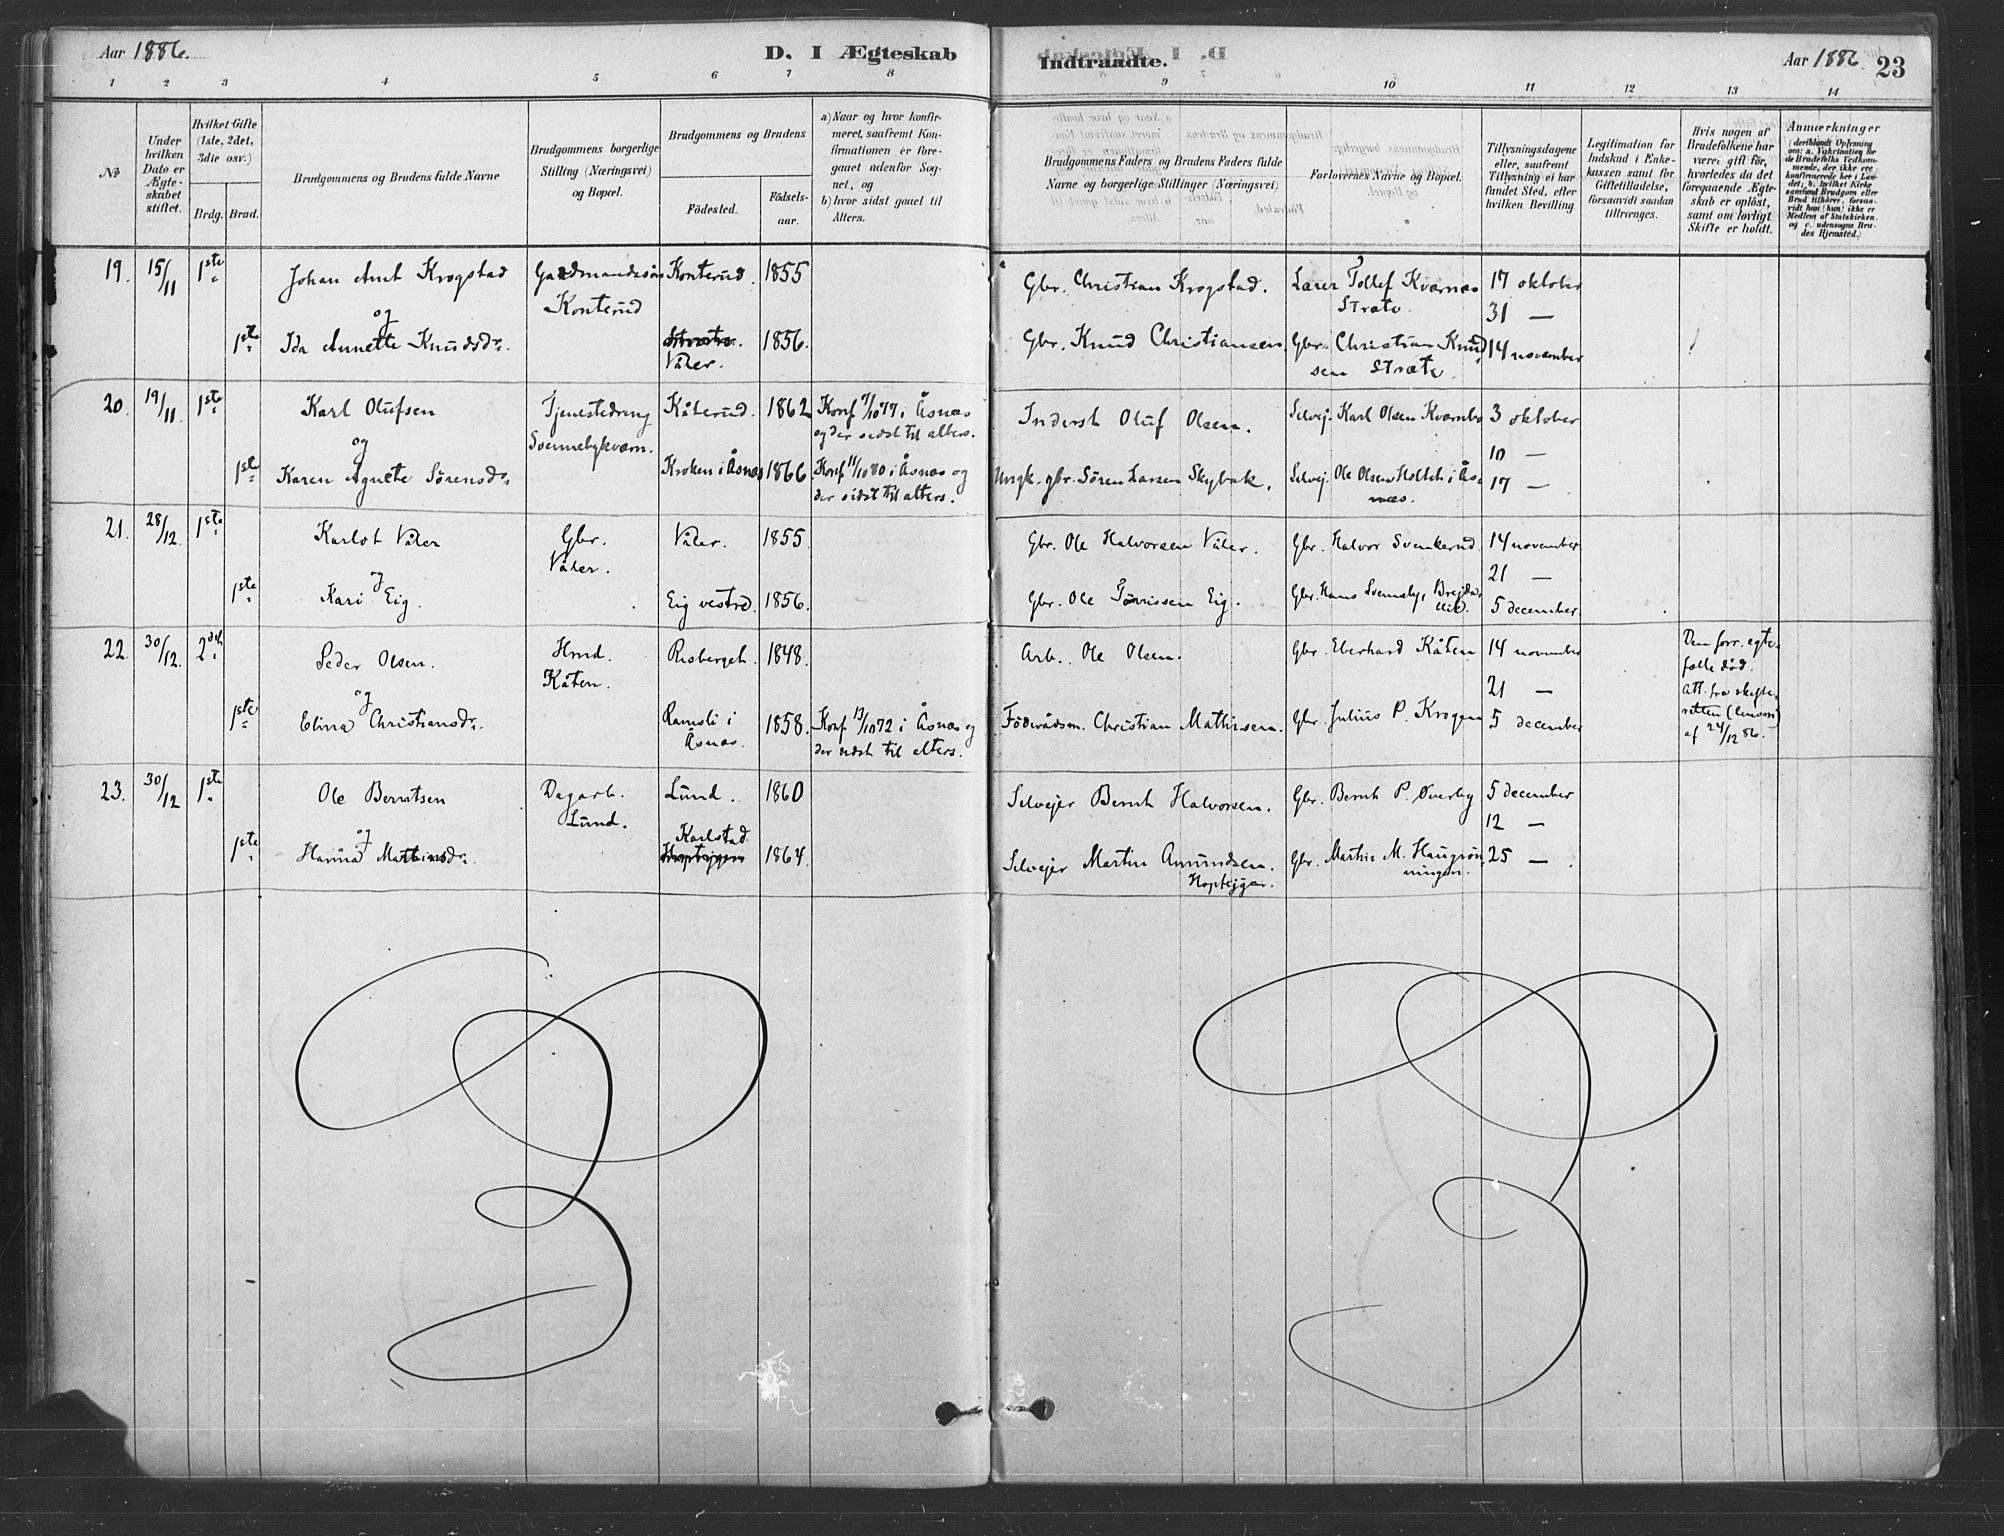 Aar 1886.
D. I Ægteskab
Indtraadte.
Aar 1886
23
1 2 3 4 5 6 7 8 9 10 11 12 13 14
No
Under hvilken Dato er Ægteskabet stiftet.
Hvilket Gifte (1ste, 2det, 3die osv.)
Brdg. Brud.
Brudgommens og Brudens fulde Navne
Brudgommens borgerlige Stilling (Næringsvei) og Bopæl.
Brudgommens og Brudens
Födested.
Födsels-aar.
a) Naar og hvor konfirmeret, saafremt Konfirmationen er foregaaet udenfor Sognet, og
b) hvor sidst gaaet til Alters.
Brudgommens Faders og Brudens Faders fulde Navne og borgerlige Stillinger (Næringsvei)
Forlovernes Navne og Bopæl.
Tillysningsdagene eller, saafremt Tillysning ei har fundet Sted, efter hvilken Bevilling
Legitimation for Indskud i Enkekassen samt for Giftetilladelse, forsaavidt saadan tiltrænges.
Hvis nogen af Brudefolkene har været gift før, hvorledes da det foregaaende Ægteskab er oplöst, samt om lovligt Skifte er holdt.
Anmærkninger
(deriblandt Oplysning om: a. Vakcination for de Brudefolks Vedkommende, der ikke ere konfirmerede her i Landet; b. hvilket Kirkesamfund Brudgom eller Brud tilhörer, forsaavidt han (hun) ikke er Medlem af Statskirken, og c. udensogns Brudes Hjemsted.)
19. 15/11 1ste Johan Amt Krogstad Gaardmandssön Konterud. 1855 Gbr. Christian Krogstad. Lærer Tollef Kvernæs 17 oktober
og Konterud Stræte. 31 —
1ste Ida Annette Knudsdr. Stræte. Våler. 1856. Gbr. Knud Christiansen. Gbr. Christian Knudsen Stræte. 14 november
20. 19/11 1ste Karl Olufsen Tjenestedreng Kåterud. 1862 Konf 7/10 77 i Åsnæs Inderst Oluf Olsen. Selvej. Karl Olsen Kværnbo 3 oktober
og Svennebykværn. og der sidst til alters. 10 —
1ste Karen Agnete Sörensdr. Kroken i Åsnæs 1866 Konf 11/10 80 i Åsnæs og Ungk. gbr. Sören Larsen Skybak. Selvej. Ole Olsen Holtet i Ås- 17 —
der sidst til alters. næs.
21. 28/12. 1ste Karlot Våler Gbr. Våler. 1855. Gbr. Ole Halvorsen Våler. Gbr. Halvor Svenkerud. 14 november
og Våler. 21 —
1ste Kari Eig. Eig vestre. 1856. Gbr. Ole Eig. Gbr. Hans Svenneby, 5 december
22. 30/12. 2det Peder Olsen. Hmd. Risberget. 1848. Arb. Ole Olsen. Gbr. Eberhard Kåten 14 november Den forr. egte-
og Kåten. 21 — fælle död.
Att. fra skifte-
1ste Elina Christiansdr. Ramsli i 1858. Konf 13/10 72 i Åsnæs og Föderådsm. Christian Mathisen. Gbr. Julius P. Krogen 5 december retten
Åsnæs. der sidst til alters. af 24/12 86.
23. 30/12 1ste Ole Berntsen Dagarb. Lund. 1860 Selvejer Bernt Halvorsen. Gbr. Bernt P. Överby 5 december
og Lund. Karlstad 12 —
1ste Hanna Martinsdr. Hoptjgen 1864. Selvejer Martin Amundsen. Gbr. Martin M. Haugrön- 25 —
Hoptjgen. ningen.